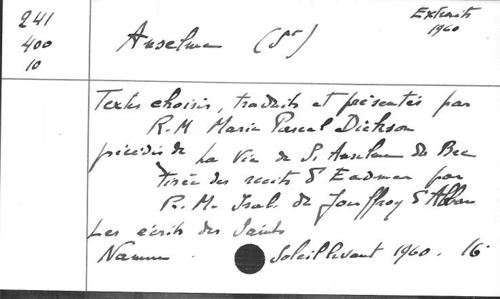 241
400
10
Anselme (St)
Extraits
1960
Textes choisis, traduits et présentés par
R.M Marie Pascal Dickson
précédés de La Vie de S. Anselme du Bec
tirée des récits d'Eadmer par
R. M. Isab. de Jouffroy d'Abbans
Les écrits des Saints
Namur Soleil levant 1960. 16°